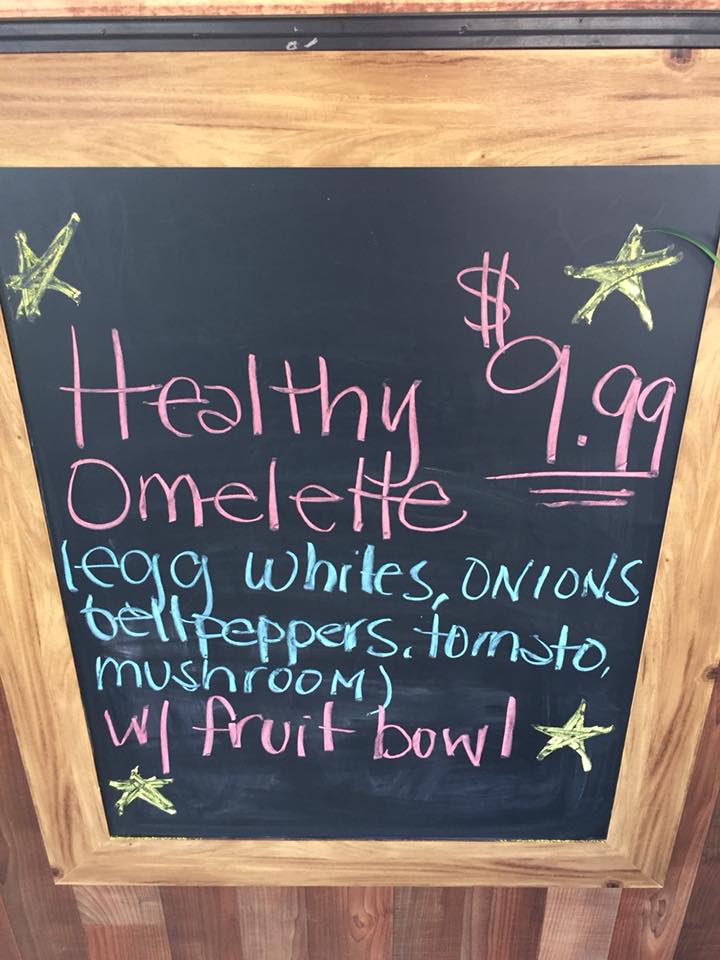 Healthy $9.99
Omelette
(egg whites, ONIONS
bellpeppers, tomato,
mushrOOM)
w/ fruit bowl